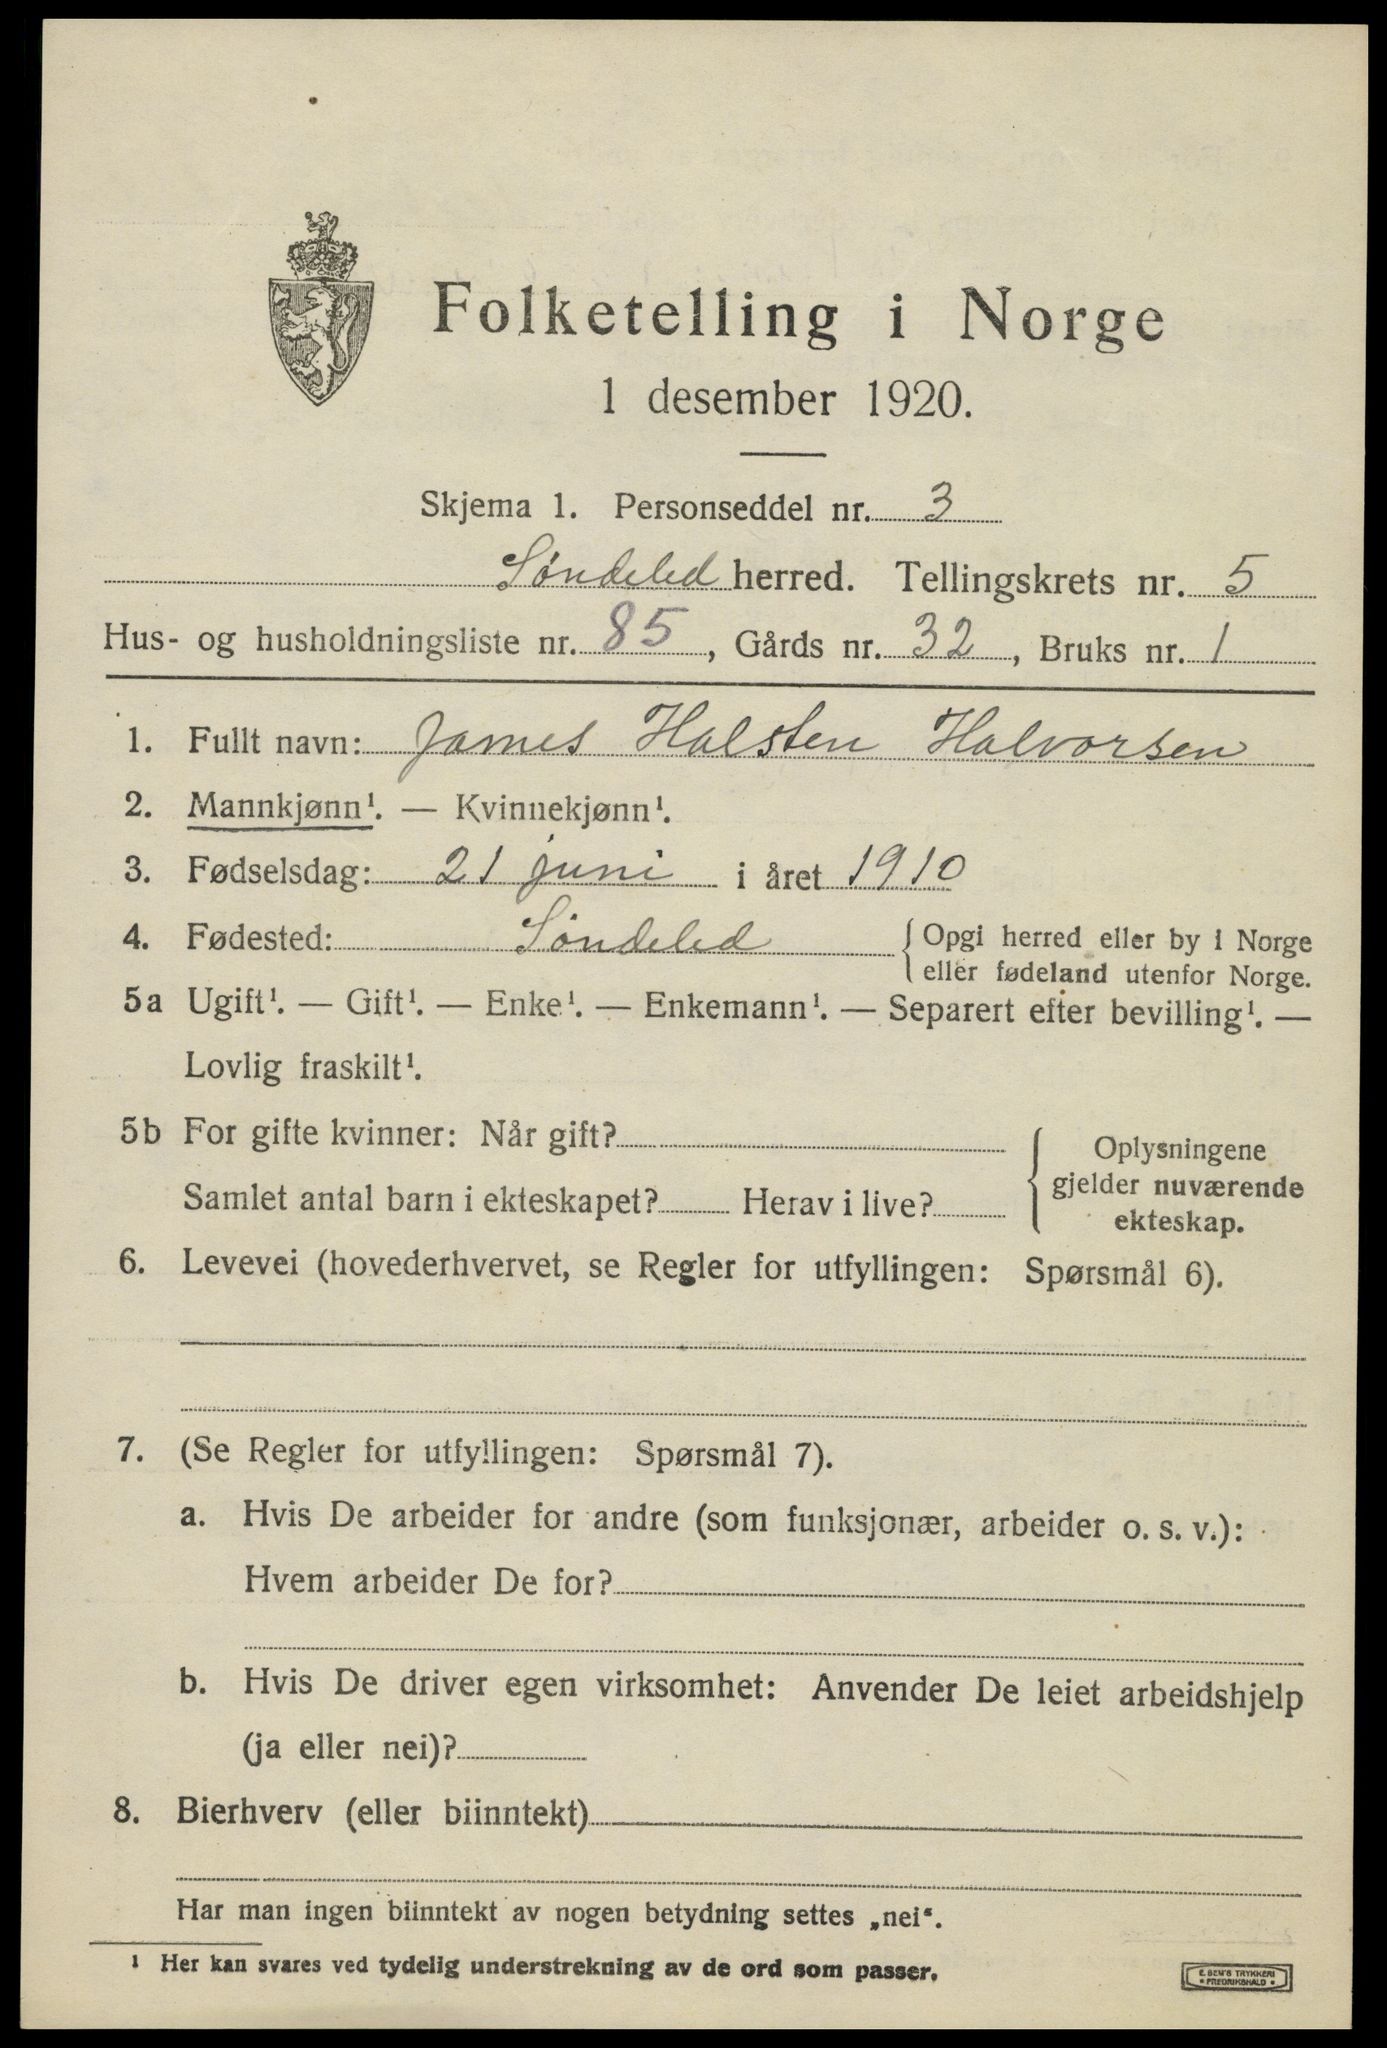 Folketelling i Norge
1 desember 1920.
Skjema 1. Personseddel nr. 3
Søndeled herred. Tellingskrets nr. 5
Hus- og husholdningsliste nr. 85, Gårds nr. 32, Bruks nr. 1
1. Fullt navn: James Halsten Halvorsen
2. Mannkjønn¹. — Kvinnekjønn¹.
3. Fødselsdag: 21 juni i året 1910
4. Fødested: Søndeled { Opgi herred eller by i Norge
eller fødeland utenfor Norge.
5a Ugift¹. — Gift¹. — Enke¹. — Enkemann¹. — Separert efter bevilling¹. —
Lovlig fraskilt¹.
5b For gifte kvinner: Når gift?
Samlet antal barn i ekteskapet? Herav i live?
{ Oplysningene
gjelder nuværende
ekteskap.
6. Levevei (hovederhvervet, se Regler for utfyllingen: Spørsmål 6).
7. (Se Regler for utfyllingen: Spørsmål 7).
a. Hvis De arbeider for andre (som funksjonær, arbeider o. s. v.):
Hvem arbeider De for?
b. Hvis De driver egen virksomhet: Anvender De leiet arbeidshjelp
(ja eller nei)?
8. Bierhverv (eller biinntekt)
Har man ingen biinntekt av nogen betydning settes „nei“.
¹ Her kan svares ved tydelig understrekning av de ord som passer.
E. SEM'S TRYKKERI
• FREDRIKSHALD •